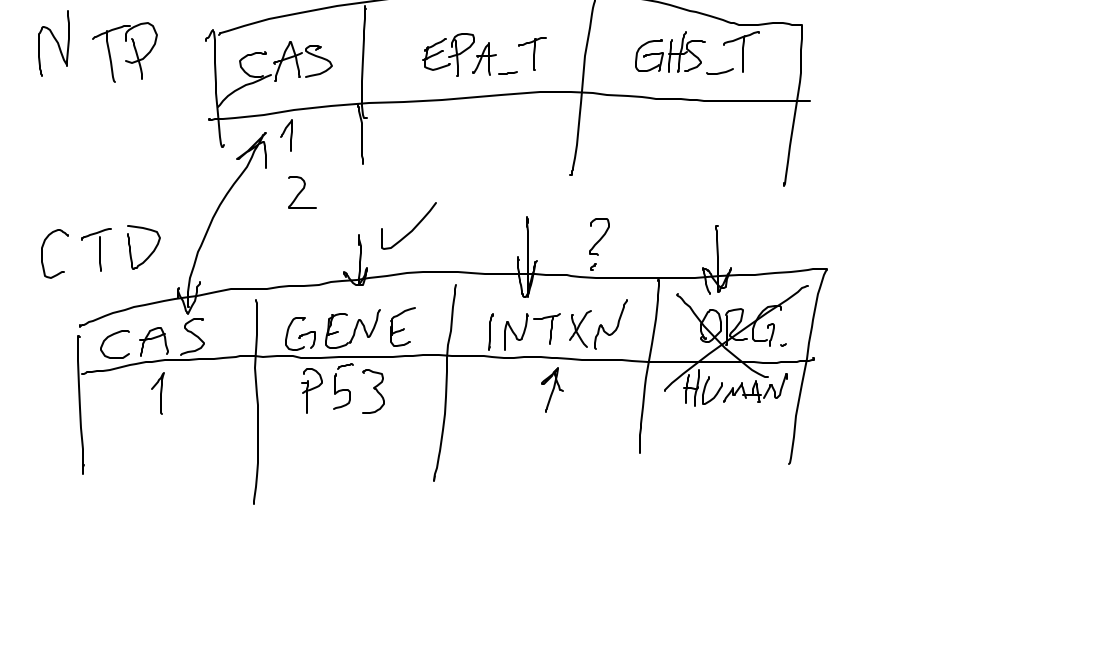 NTP
CAS EPA_T GHS_T
1
2
CTD
?
CAS GENE INTXN ORG.
1 P53 ↑ HUMAN